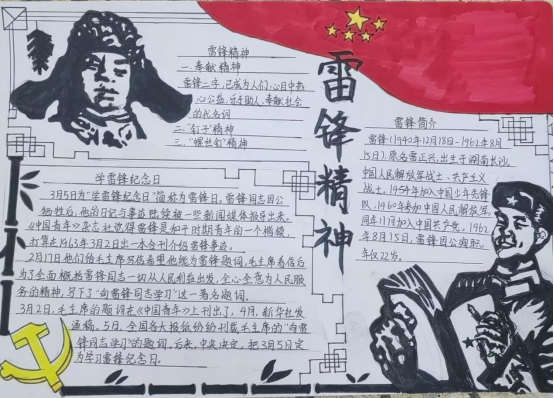 雷锋精神
雷锋精神
一、奉献精神
雷锋二字,已成为人们心目中热
心公益,乐于助人、奉献社会
的代名词
二、"钉子"精神
三、"螺丝钉"精神
学雷锋纪念日
3月5日为"学雷锋纪念日"简称为雷锋日,雷锋同志因公
牺牲后,他的日记与事迹陆续被一些新闻媒体报导出来,
《中国青年》杂志社觉得雷锋是和平时期青年的一个楷模,
打算在1963年3月2日出一本合刊介绍雷锋事迹。
2月17日他们给毛主席写信希望他能为雷锋题词,毛主席看信后
为了全面概括雷锋同志一切从人民利益出发,全心全意为人民服
务的精神,写下了"向雷锋同志学习"这一著名题词。
3月2日,毛主席的题词在《中国青年》上刊出了,4月,新华社发
通稿,5月,全国各大报纸纷纷刊载毛主席的"向雷
锋同志学习"的题词,后来,中央决定,把3月5日定
为学习雷锋纪念日。
雷锋简介
雷锋(1940年12月18日-1962年8月
15日),原名雷正兴,出生于湖南长沙,
中国人民解放军战士,共产主义
战士,1954年加入中国少年先锋
队,1960年参加中国人民解放军,
同年11月加入中国共产党,1962
年8月15日,雷锋因公殉职,
年仅22岁。